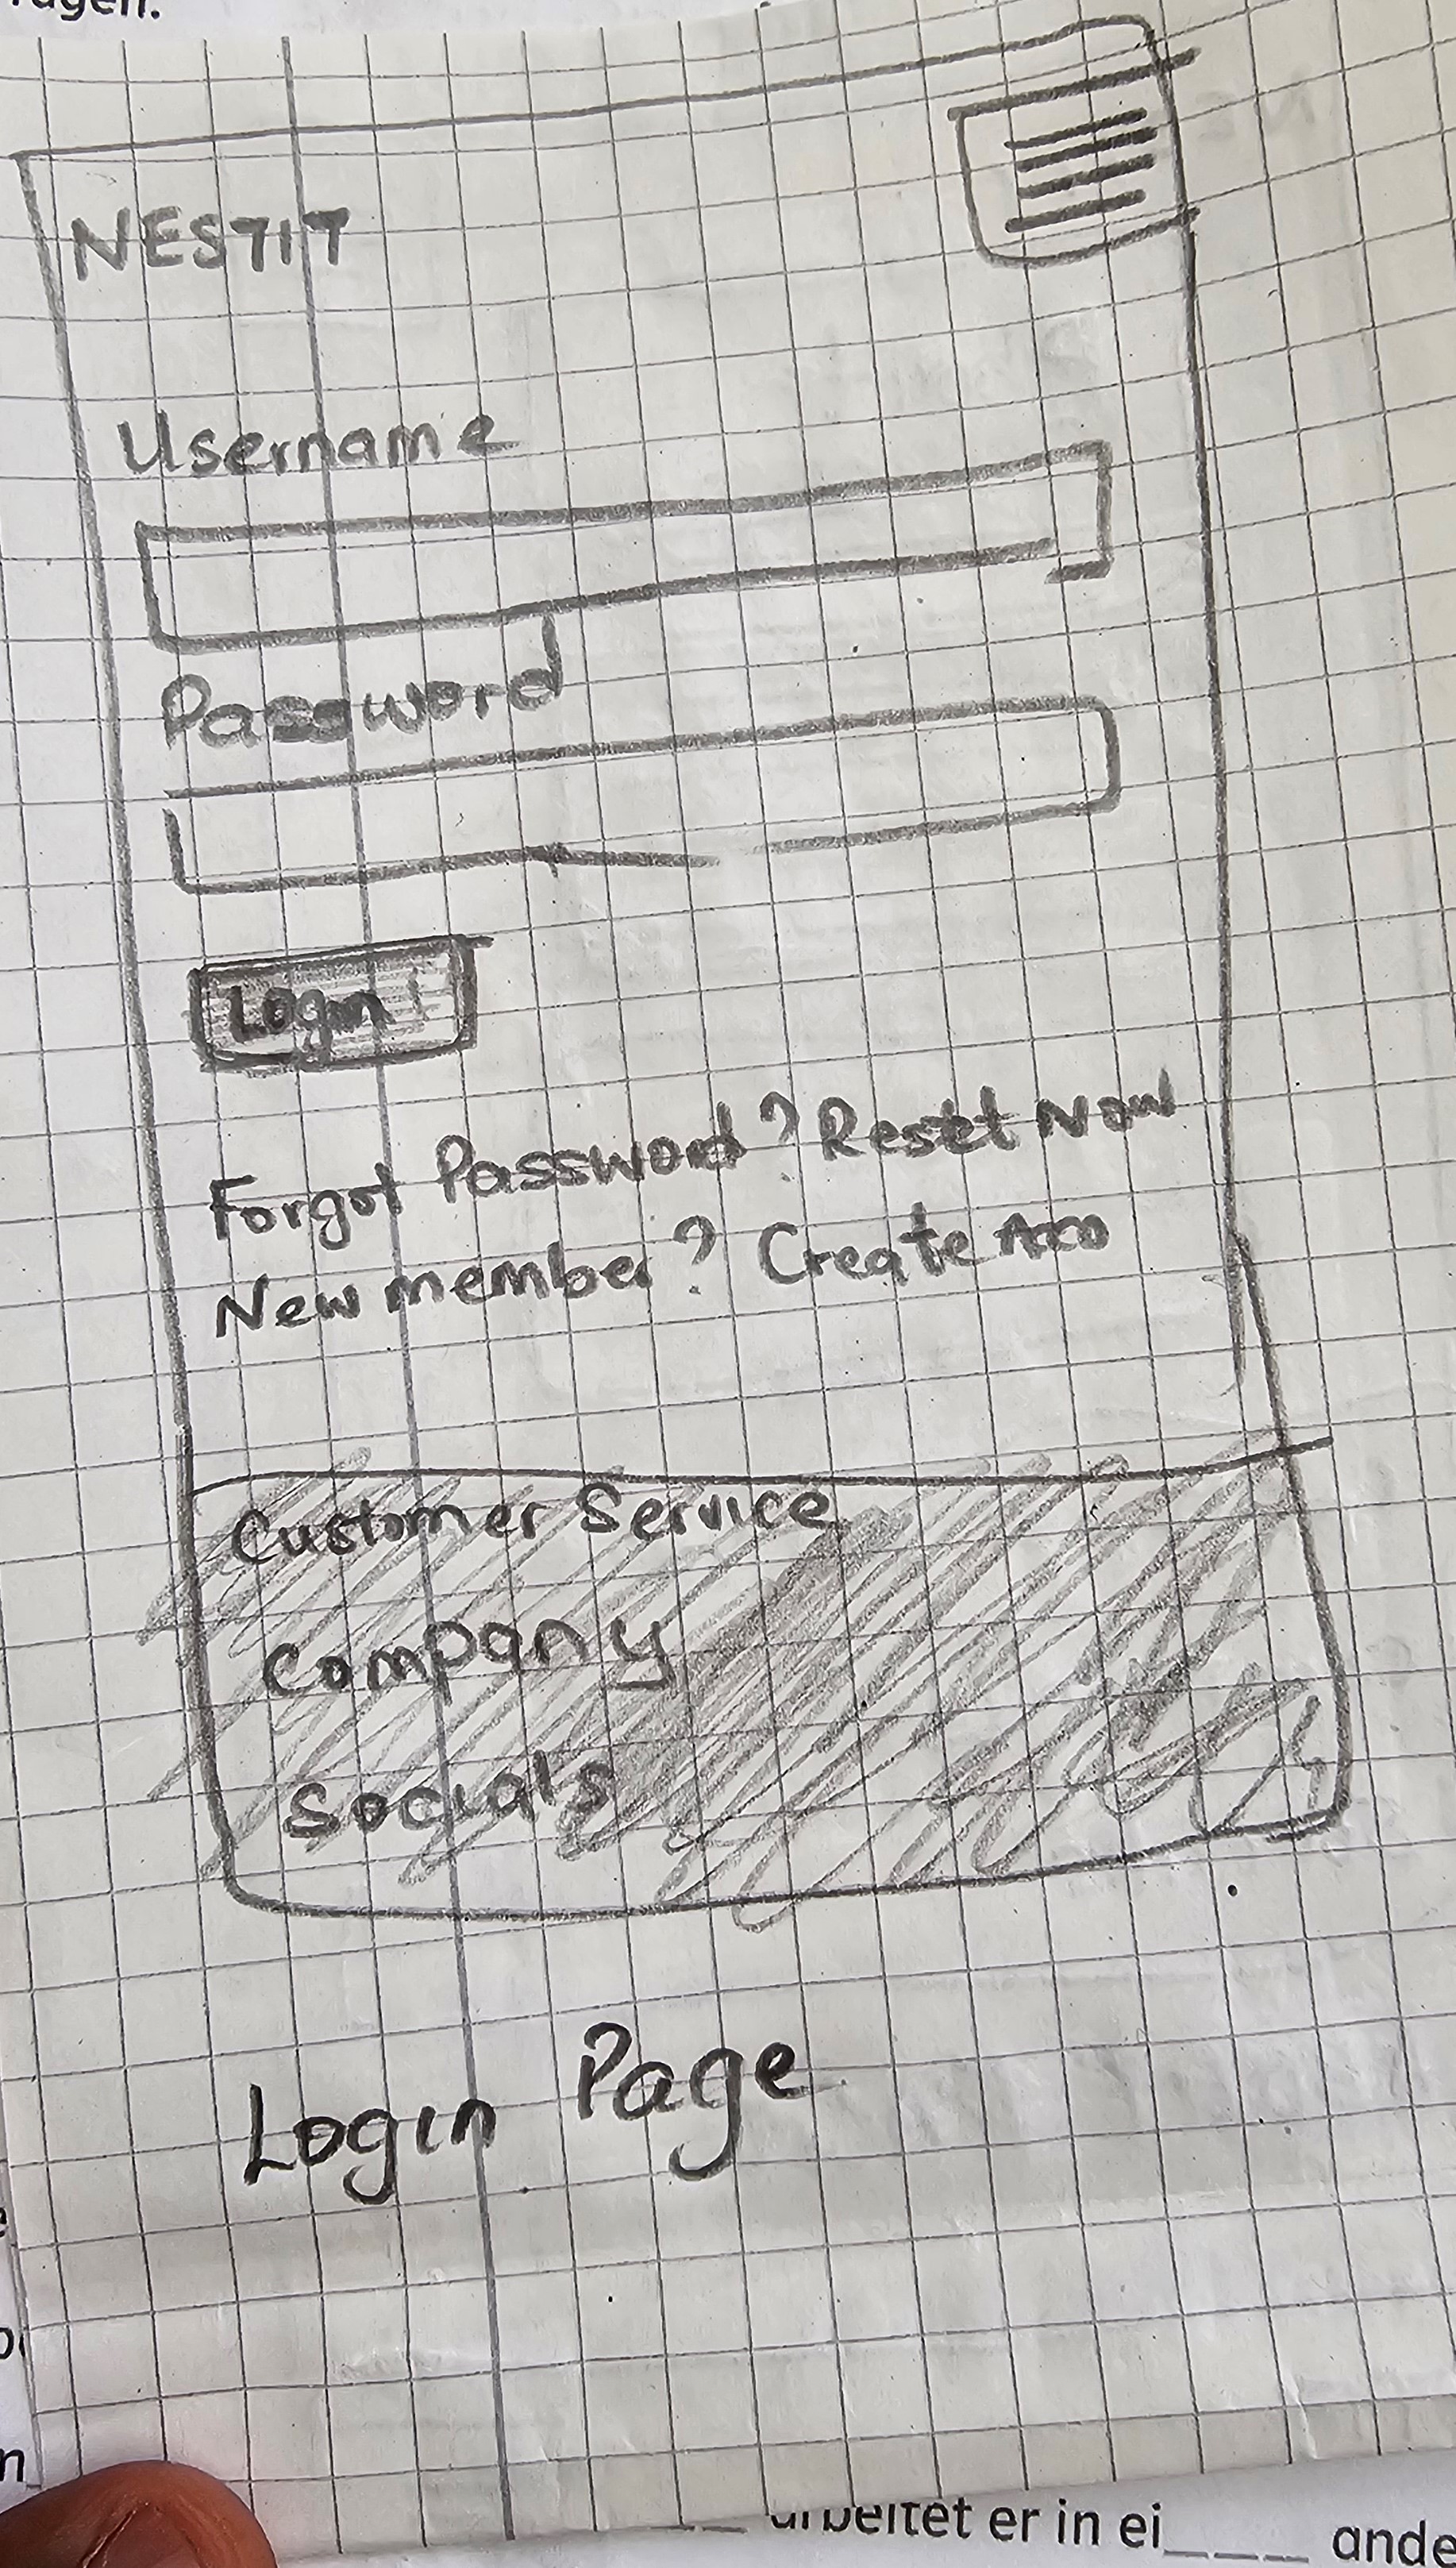 NESTIT
Username
Password
Login
Forgot Password? Reset Now
New member? Create Acco
Customer Service
Company
Socials
Login Page
arbeitet er in ei____ ande